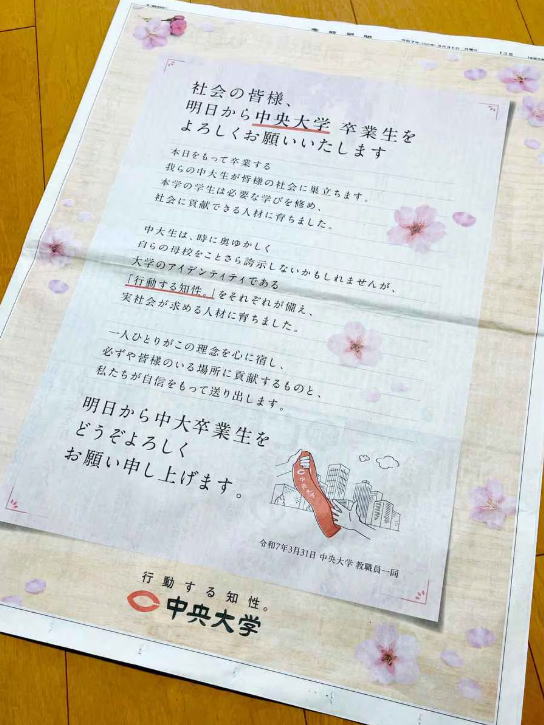 社会の皆様、
明日から中央大学 卒業生を
よろしくお願いいたします
本日をもって卒業する
我らの中大生が皆様の社会に巣立ちます。
本学の学生は必要な学びを修め、
社会に貢献できる人材に育ちました。
中大生は、時に奥ゆかしく
自らの母校をことさら誇示しないかもしれませんが、
大学のアイデンティティである
「行動する知性。」をそれぞれが備え、
実社会が求める人材に育ちました。
一人ひとりがこの理念を心に宿し、
必ずや皆様のいる場所に貢献するものと、
私たちが自信をもって送り出します。
明日から中大卒業生を
どうぞよろしく
お願い申し上げます。
中央大学
令和7年3月31日 中央大学 教職員一同
行動する知性。
中央大学